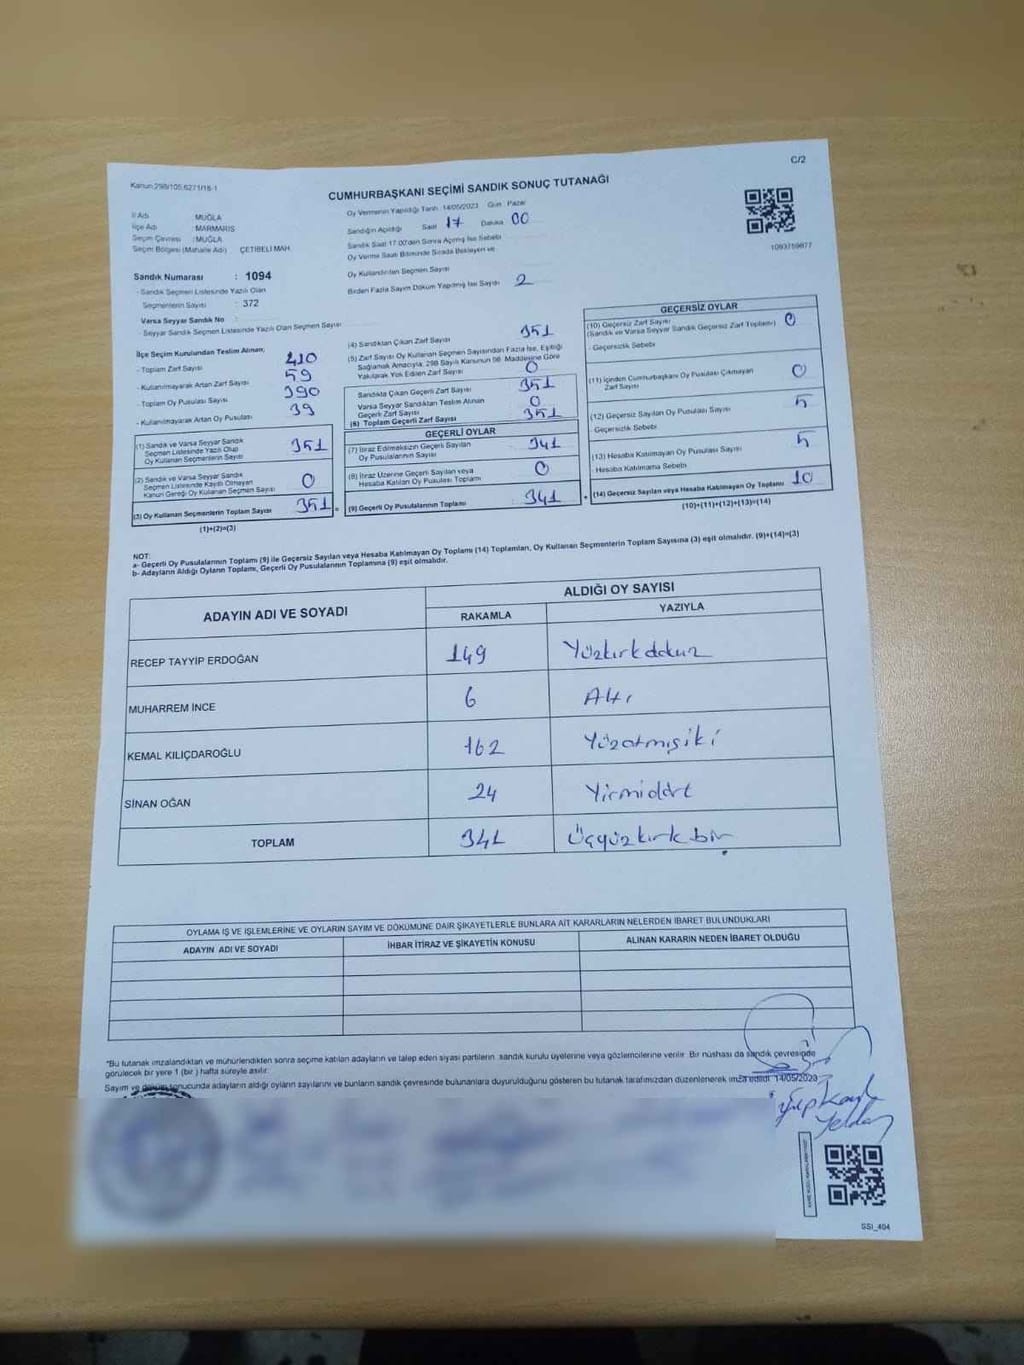 C/2
Kanun:298/105,6271/18-1
CUMHURBAŞKANI SEÇİMİ SANDIK SONUÇ TUTANAĞI
İl Adı : MUĞLA
İlçe Adı : MARMARIS
Seçim Çevresi : MUĞLA
Seçim Bölgesi (Mahalle Adı) ÇETİBELİ MAH.
Oy Vermenin Yapıldığı Tarih :14/05/2023 Gün : Pazar
Sandığın Açıldığı Saat 17 Dakika 00
Sandık Saat 17.00'den Sonra Açılmış İse Sebebi
Oy Verme Saati Bitiminde Sırada Bekleyen ve
Oy Kullandırılan Seçmen Sayısı
Birden Fazla Sayım Döküm Yapılmış İse Sayısı 2
1093759877
Sandık Numarası : 1094
- Sandık Seçmen Listesinde Yazılı Olan
Seçmenlerin Sayısı : 372
Varsa Seyyar Sandık No
- Seyyar Sandık Seçmen Listesinde Yazılı Olan Seçmen Sayısı
İlçe Seçim Kurulundan Teslim Alınan;
- Toplam Zarf Sayısı 410
- Kullanılmayarak Artan Zarf Sayısı 59
- Toplam Oy Pusulası Sayısı 390
- Kullanılmayarak Artan Oy Pusulası 39
(1) Sandık ve Varsa Seyyar Sandık
Seçmen Listesinde Yazılı Olup
Oy Kullanan Seçmenlerin Sayısı 351
(2) Sandık ve Varsa Seyyar Sandık
Seçmen Listesinde Kayıtlı Olmayan
Kanun Gereği Oy Kullanan Seçmen Sayısı 0
(3) Oy Kullanan Seçmenlerin Toplam Sayısı 351
(1)+(2)=(3)
(4) Sandıktan Çıkan Zarf Sayısı 351
(5) Zarf Sayısı Oy Kullanan Seçmen Sayısından Fazla İse, Eşitliği
Sağlamak Amacıyla, 298 Sayılı Kanunun 98. Maddesine Göre
Yakılarak Yok Edilen Zarf Sayısı 0
Sandıkta Çıkan Geçerli Zarf Sayısı 351
Varsa Seyyar Sandıktan Teslim Alınan
Geçerli Zarf Sayısı 0
(6) Toplam Geçerli Zarf Sayısı 351
GEÇERLİ OYLAR
(7) İtiraz Edilmeksizin Geçerli Sayılan
Oy Pusulalarının Sayısı 341
(8) İtiraz Üzerine Geçerli Sayılan veya
Hesaba Katılan Oy Pusulası Toplamı 0
(9) Geçerli Oy Pusulalarının Toplamı 341
GEÇERSİZ OYLAR
(10) Geçersiz Zarf Sayısı
(Sandık ve Varsa Seyyar Sandık Geçersiz Zarf Toplamı) 0
- Geçersizlik Sebebi
(11) İçinden Cumhurbaşkanı Oy Pusulası Çıkmayan
Zarf Sayısı 0
(12) Geçersiz Sayılan Oy Pusulası Sayısı 5
- Geçersizlik Sebebi
(13) Hesaba Katılmayan Oy Pusulası Sayısı 5
Hesaba Katılmama Sebebi
(14) Geçersiz Sayılan veya Hesaba Katılmayan Oy Toplamı 10
(10)+(11)+(12)+(13)=(14)
NOT:
a- Geçerli Oy Pusulalarının Toplamı (9) ile Geçersiz Sayılan veya Hesaba Katılmayan Oy Toplamı (14) Toplamları, Oy Kullanan Seçmenlerin Toplam Sayısına (3) eşit olmalıdır. (9)+(14)=(3)
b- Adayların Aldığı Oyların Toplamı, Geçerli Oy Pusulalarının Toplamına (9) eşit olmalıdır.
ADAYIN ADI VE SOYADI
ALDIĞI OY SAYISI
RAKAMLA YAZIYLA
RECEP TAYYİP ERDOĞAN 149 Yüzkırkdokuz
MUHARREM İNCE 6 Altı
KEMAL KILIÇDAROĞLU 162 Yüzatmışiki
SİNAN OĞAN 24 Yirmidört
TOPLAM 341 Üçyüzkırkbir
OYLAMA İŞ VE İŞLEMLERİNE VE OYLARIN SAYIM VE DÖKÜMÜNE DAİR ŞİKAYETLERLE BUNLARA AİT KARARLARIN NELERDEN İBARET BULUNDUKLARI
ADAYIN ADI VE SOYADI İHBAR İTİRAZ VE ŞİKAYETİN KONUSU ALINAN KARARIN NEDEN İBARET OLDUĞU
*Bu tutanak imzalandıktan ve mühürlendikten sonra seçime katılan adayların ve talep eden siyasi partilerin sandık kurulu üyelerine veya gözlemcilerine verilir. Bir nüshası da sandık çevresinde
görülecek bir yere 1 (bir ) hafta süreyle asılır.
Sayım ve döküm sonucunda adayların aldığı oyların sayılarını ve bunların sandık çevresinde bulunanlara duyurulduğunu gösteren bu tutanak tarafımızdan düzenlenerek imza edildi. 14/05/2023
SSI_404